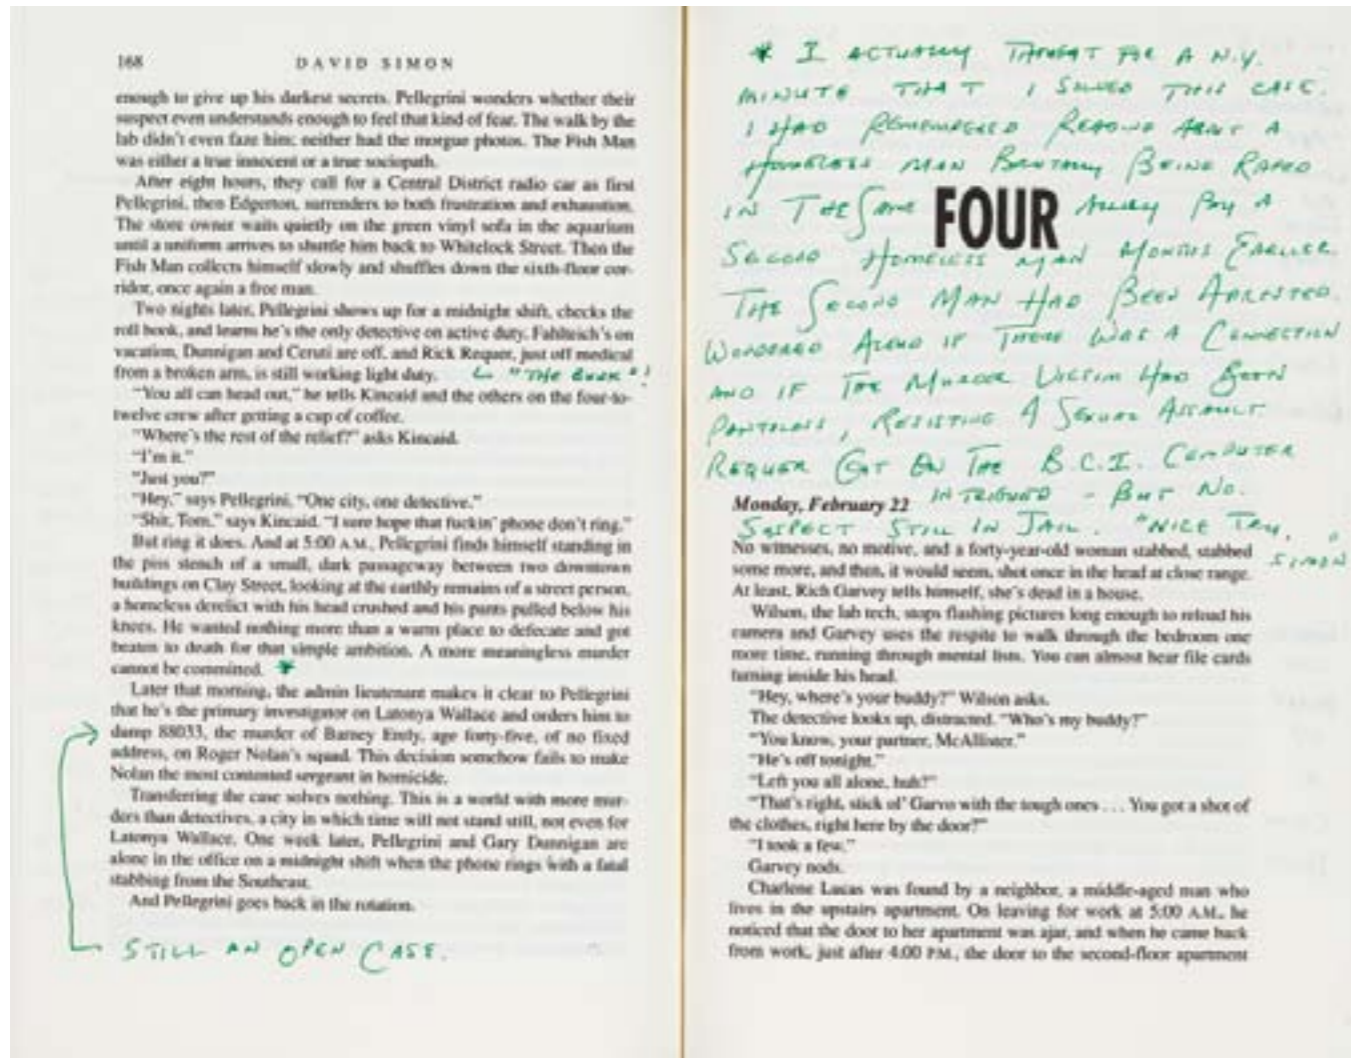 168
DAVID SIMON
enough to give up his darkest secrets. Pellegrini wonders whether their
suspect even understands enough to feel that kind of fear. The walk by the
lab didn't even faze him; neither had the morgue photos. The Fish Man
was either a true innocent or a true sociopath.
After eight hours, they call for a Central District radio car as first
Pellegrini, then Edgerton, surrenders to both frustration and exhaustion.
The store owner waits quietly on the green vinyl sofa in the aquarium
until a uniform arrives to shuttle him back to Whitelock Street. Then the
Fish Man collects himself slowly and shuffles down the sixth-floor cor-
ridor, once again a free man.
Two nights later, Pellegrini shows up for a midnight shift, checks the
roll book, and learns he's the only detective on active duty. Fahlteich's on
vacation, Dunnigan and Ceruti are off, and Rick Requer, just off medical
from a broken arm, is still working light duty. "THE BUNK"!
"You all can head out," he tells Kincaid and the others on the four-to-
twelve crew after getting a cup of coffee.
"Where's the rest of the relief?" asks Kincaid.
"I'm it."
"Just you?"
"Hey," says Pellegrini. "One city, one detective."
"Shit, Tom," says Kincaid. "I sure hope that fuckin' phone don't ring."
But ring it does. And at 5:00 A.M., Pellegrini finds himself standing in
the piss stench of a small, dark passageway between two downtown
buildings on Clay Street, looking at the earthly remains of a street person,
a homeless derelict with his head crushed and his pants pulled below his
knees. He wanted nothing more than a warm place to defecate and got
beaten to death for that simple ambition. A more meaningless murder
cannot be committed. *
Later that morning, the admin lieutenant makes it clear to Pellegrini
that he's the primary investigator on Latonya Wallace and orders him to
dump 88033, the murder of Barney Erely, age forty-five, of no fixed
address, on Roger Nolan's squad. This decision somehow fails to make
Nolan the most contented sergeant in homicide.
Transferring the case solves nothing. This is a world with more mur-
ders than detectives, a city in which time will not stand still, not even for
Latonya Wallace. One week later, Pellegrini and Gary Dunnigan are
alone in the office on a midnight shift when the phone rings with a fatal
stabbing from the Southeast.
And Pellegrini goes back in the rotation.
STILL AN OPEN CASE.
* I ACTUALLY THOUGHT FOR A N.Y.
MINUTE THAT I SOLVED THIS CASE.
I HAD REMEMBERED READING ABOUT A
HOMELESS MAN BRUTALLY BEING RAPED
IN THE SAME ALLEY BY A
FOUR
SECOND HOMELESS MAN MONTHS EARLIER.
THE SECOND MAN HAD BEEN ARRESTED.
WONDERED ALOUD IF THERE WAS A CONNECTION
AND IF THE MURDER VICTIM HAD BEEN
PANTSLESS, RESISTING A SEXUAL ASSAULT.
REQUER GOT ON THE B.C.I. COMPUTER
INTRIGUED - BUT NO.
Monday, February 22
SUSPECT STILL IN JAIL. "NICE TRY,
SIMON"
No witnesses, no motive, and a forty-year-old woman stabbed, stabbed
some more, and then, it would seem, shot once in the head at close range.
At least, Rich Garvey tells himself, she's dead in a house.
Wilson, the lab tech, stops flashing pictures long enough to reload his
camera and Garvey uses the respite to walk through the bedroom one
more time, running through mental lists. You can almost hear file cards
turning inside his head.
"Hey, where's your buddy?" Wilson asks.
The detective looks up, distracted. "Who's my buddy?"
"You know, your partner, McAllister."
"He's off tonight."
"Left you all alone, huh?"
"That's right, stick ol' Garvo with the tough ones . . . You got a shot of
the clothes, right here by the door?"
"I took a few."
Garvey nods.
Charlene Lucas was found by a neighbor, a middle-aged man who
lives in the upstairs apartment. On leaving for work at 5:00 A.M., he
noticed that the door to her apartment was ajar, and when he came back
from work, just after 4:00 P.M., the door to the second-floor apartment